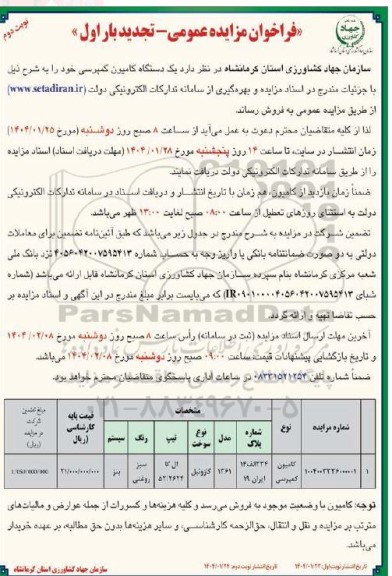 نوبت دوم
«فراخوان مزایده عمومی- تجدید بار اول»
جهاد کشاورزی
سازمان جهاد کشاورزی استان کرمانشاه در نظر دارد یک دستگاه کامیون کمپرسی خود را به شرح ذیل
با جزئیات مندرج در اسناد مزایده و بهره‌گیری از سامانه تدارکات الکترونیکی دولت (www.setadiran.ir)
از طریق مزایده عمومی به فروش رساند.
لذا از کلیه متقاضیان محترم دعوت به عمل می‌آید از ساعت ۸ صبح روز دوشنبه (مورخ ۱۴۰۴/۰۱/۲۵)
زمان انتشار در سایت، تا ساعت ۱۴ روز پنجشنبه مورخ ۱۴۰۴/۰۱/۲۸ (مهلت دریافت اسناد) اسناد مزایده
را از طریق سامانه تدارکات الکترونیکی دولت دریافت نمایند.
ضمناً زمان بازدید از کامیون، هم زمان با تاریخ انتشار و دریافت اسناد در سامانه تدارکات الکترونیکی
دولت به استثنای روزهای تعطیل از ساعت ۰۸:۰۰ صبح لغایت ۱۳:۰۰ ظهر می‌باشد.
تضمین شرکت در مزایده به شرح مندرج در جدول زیر می‌باشد که طبق آئین‌نامه تضمین برای معاملات
دولتی به دو صورت ضمانتنامه بانکی یا واریز وجه به حساب شماره ۴۰۵۶۰۴۲۰۰۷۵۹۵۴۱۳ نزد بانک ملی
شعبه مرکزی کرمانشاه بنام سپرده سازمان جهاد کشاورزی استان کرمانشاه قابل ارائه می‌باشد (شماره
شبای) که می‌بایست برابر مبلغ مندرج در این آگهی و اسناد مزایده بر
حسب تقاضا تهیه و ارائه گردد.
آخرین مهلت ارسال اسناد مزایده (ثبت در سامانه) رأس ساعت ۸ صبح روز دوشنبه مورخ ۱۴۰۴/۰۲/۰۸
و تاریخ بازگشایی پیشنهادات قیمت، ساعت ۰۹:۰۰ صبح روز دوشنبه مورخ ۱۴۰۴/۰۲/۰۸ می‌باشد.
ضمناً شماره تلفن در ساعات اداری پاسخگوی متقاضیان محترم خواهد بود.
شماره مزایده نوع مشخصات قیمت پایه کارشناسی (ریال) مبلغ تضمین شرکت در مزایده (ریال)
شماره پلاک مدل نوع سوخت تیپ رنگ سیستم
۱ کامیون کمپرسی ایران ۱۹ ۱۳۶۱ گازوئیل ال کا سبز روغنی بنز ۲۱/۰۰۰/۰۰۰/۰۰۰
توجه: کامیون با وضعیت موجود به فروش می‌رسد و کلیه هزینه‌ها و کسورات از جمله عوارض و مالیات‌های
مترتب بر مزایده و نقل و انتقال، حق‌الزحمه کارشناسی، و سایر هزینه‌ها بدون حق مطالبه، بر عهده خریدار
می‌باشد.
تاریخ انتشار نوبت اول: ۱۴۰۴/۰۱/۲۳ تاریخ انتشار نوبت دوم: ۱۴۰۴/۰۱/۲۴ سازمان جهاد کشاورزی استان کرمانشاه
ParsNamadData
۰۲۱-۸۸۳۴۹۶۷۰-۵